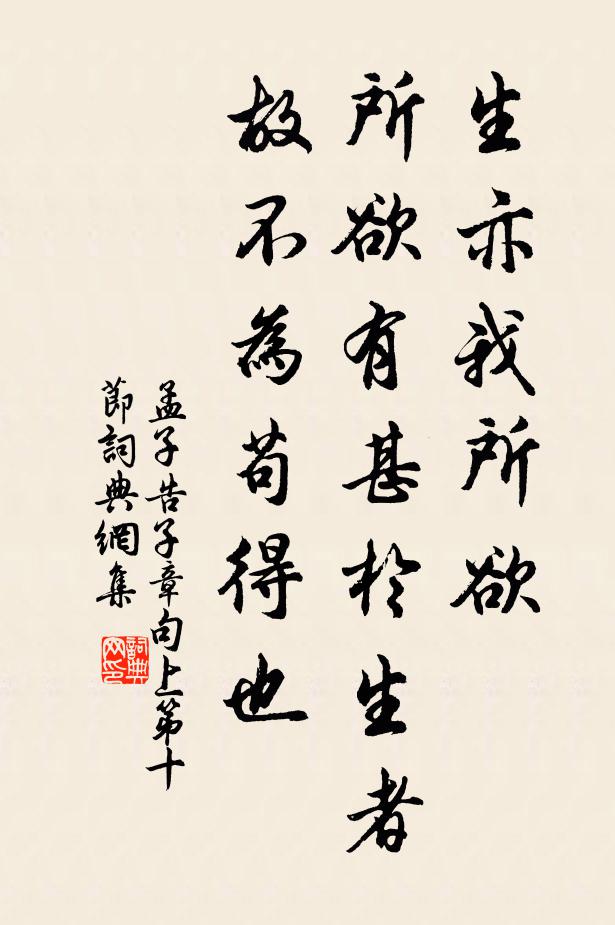 生亦我所欲
所欲有甚於生者
故不為苟得也
孟子告子章句上第十
節詞典網集
詞典网印